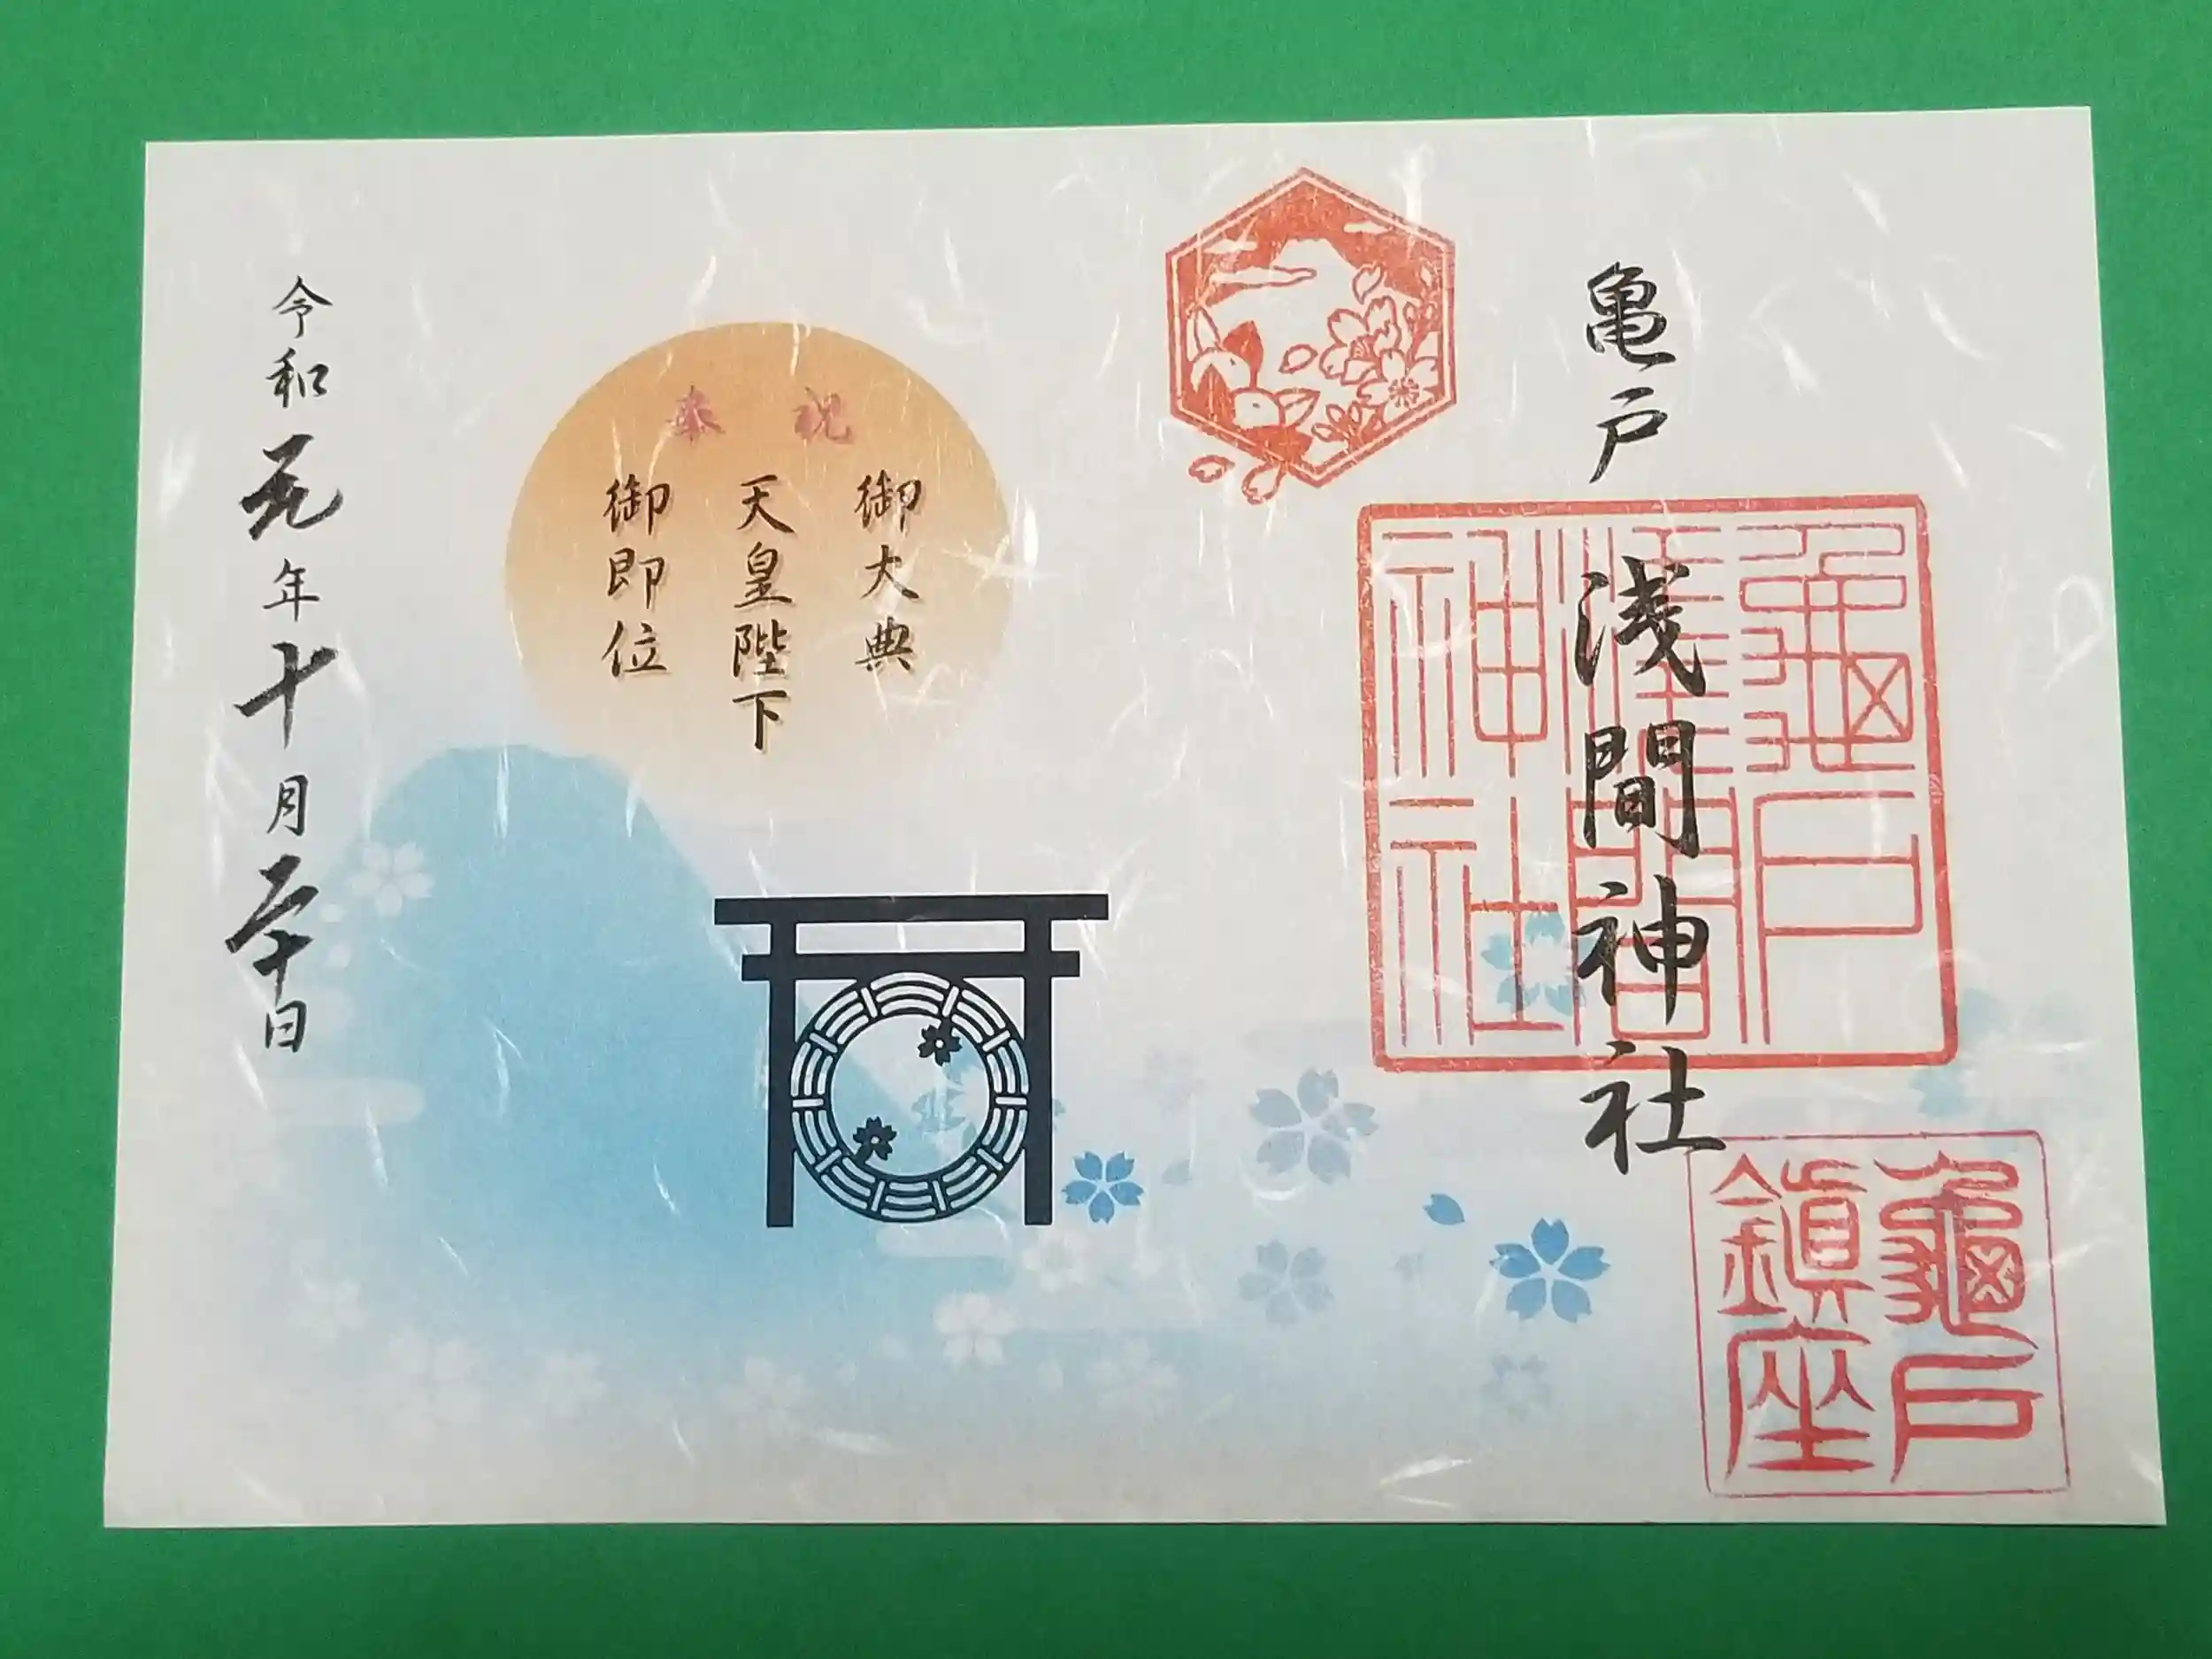 亀戸
浅間神社
龜戸
淺間
神社
龜戸
鎭座
奉祝
御大典
天皇陛下
御即位
令和元年十月二十日